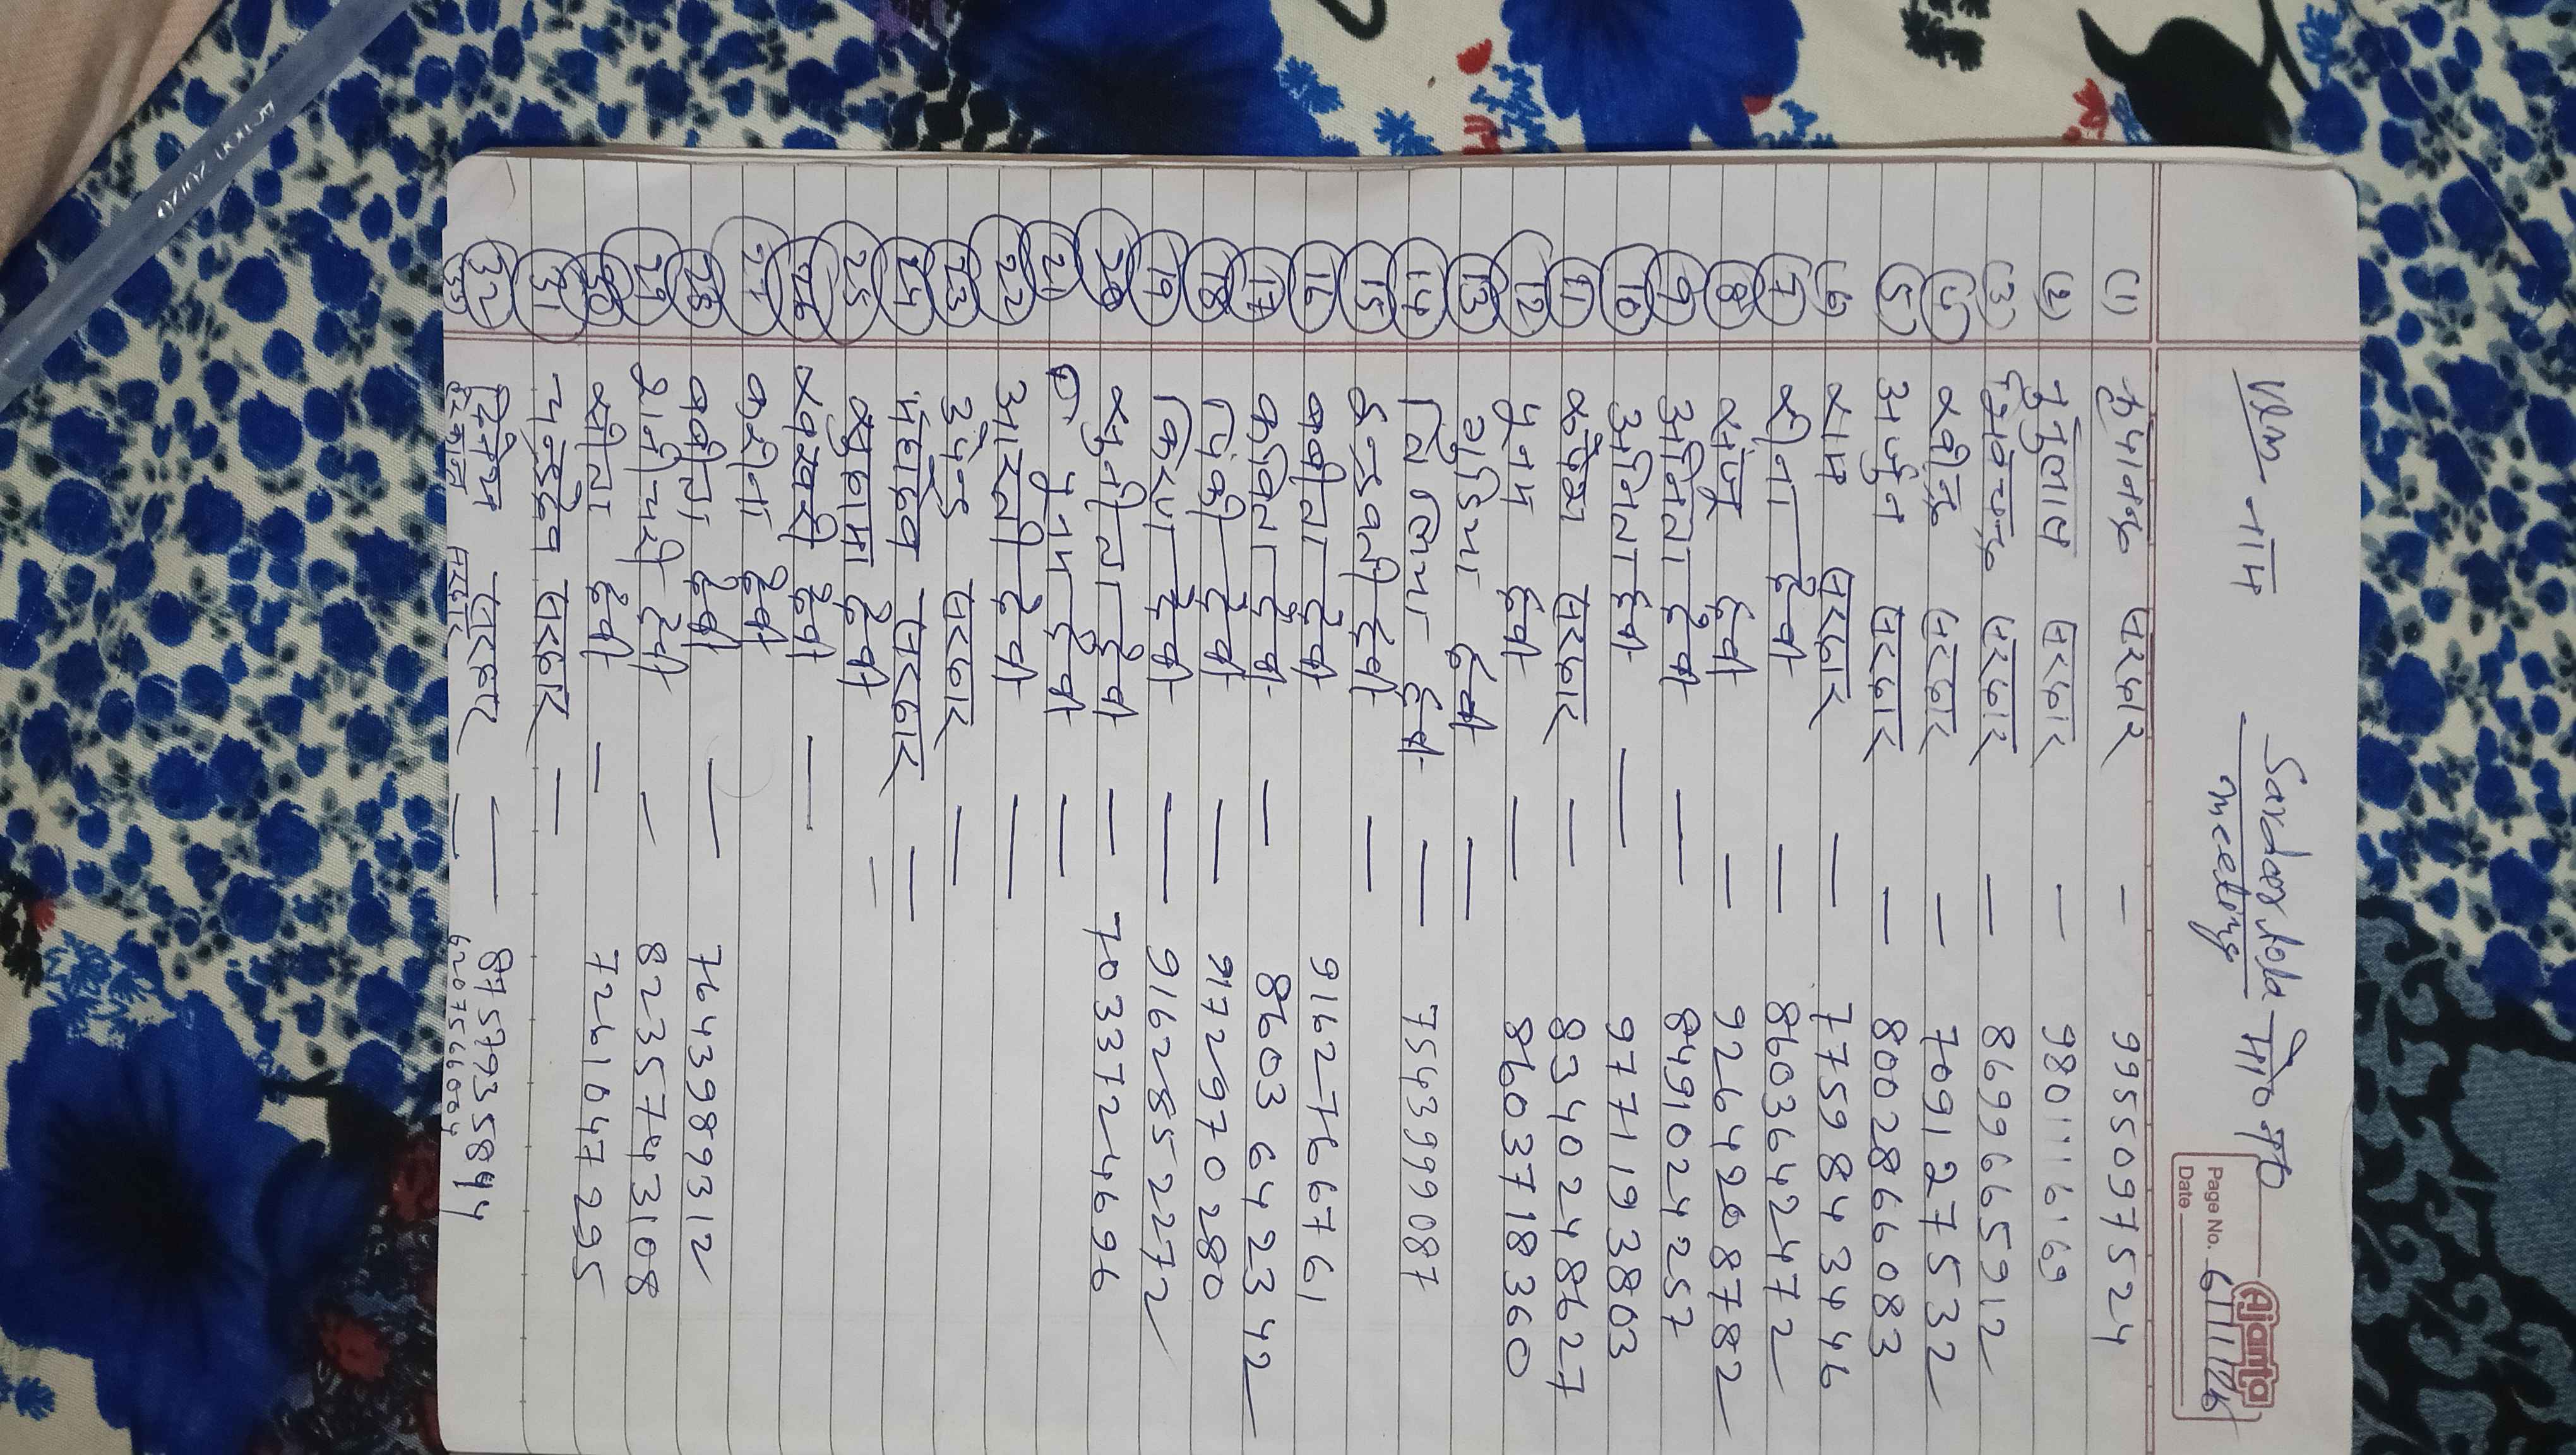 Ajanta
Page No. 6/11/26
Date
Sardar tola मो० नं०
meeting
नाम
(1) कृपानन्द सरदार — 9955097524
(2) नुनुलाल सरदार — 9801116169
(3) प्रेमचन्द्र सरदार — 8699665912
(4) रवीन्द्र सरदार — 7091275332
(5) अर्जुन सरदार — 8002866083
(6) राम सरदार — 7759843446
(7) रीना देवी — 8603642472
(8) संजू देवी — 9264268782
(9) अनिता देवी — 8491024257
(10) अनिता देवी — 9771193803
(11) रूपेश सरदार — 8340248627
(12) पुनम देवी — 8603718360
(13) गुड़िया देवी —
(14) देवी — 7543999087
(15) इन्द्रवती देवी —
(16) बबीता देवी 9162766761
(17) कविता देवी — 8603642342
(18) पिंकी देवी — 9172970280
(19) किरण देवी — 9162852272
(20) सुनीता देवी — 7033724696
(21) पुनम देवी —
(22) आरती देवी —
(23) उपेन्द्र सरदार —
(24) सरदार —
(25) सुदामा देवी —
(26) देवी —
(27) देवी
(28) बबीता देवी — 7643989312
(29) देवी — 8235743108
(30) सीता देवी — 7261047295
(31) सरदार —
(32) दिनेश सरदार — 8757935844
(33) सरदार — 6207566004